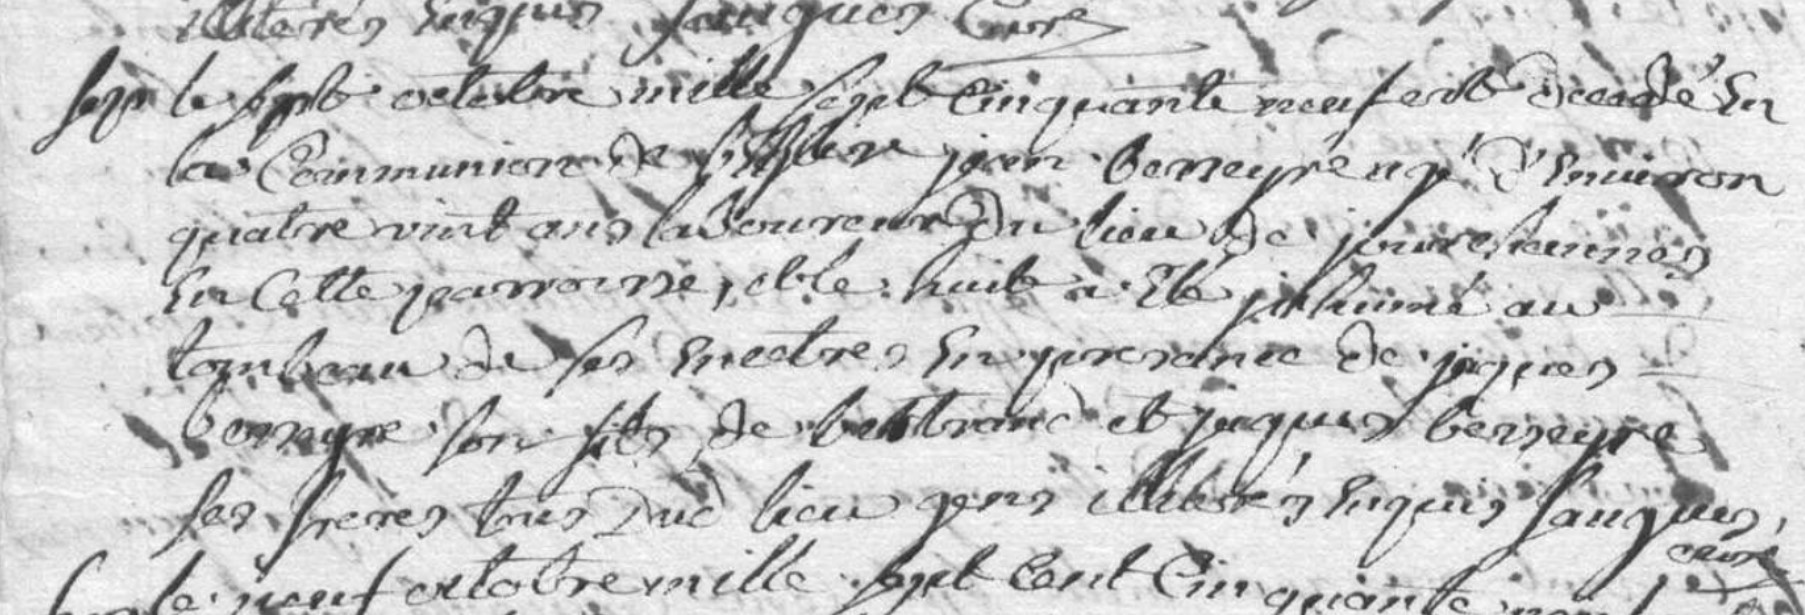 illiterés Enquis fauques Curé
le sept octobre mille sept Cinquante neuf est decedé En
la Communion de l'Eglise jean berreyre agé d'Environ
quatre vint ans laboureur du lieu de
En Cette parroisse, et le huit a Eté inhumé au
tombeau de ses Encetres En presence de jaques
berreyre son fils de bertrand et jaques berreyre
ses freres tous dud lieu gens illiterés Enquis fauques,
curé
le neuf octobre mille sept Cent Cinquante neuf